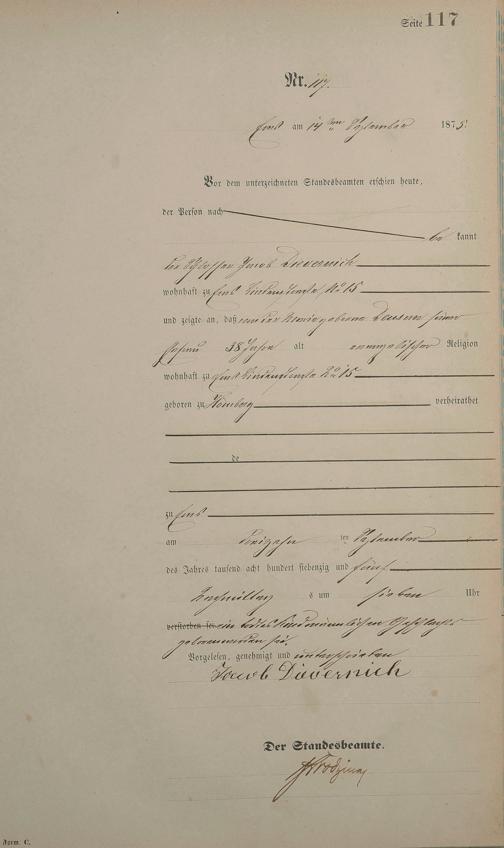 Seite 117
Nr. 117.
Ems am 14ten September 1875.
Vor dem unterzeichneten Standesbeamten erschien heute,
der Person nach
be kannt
der Schlosser Jacob Dievernich
wohnhaft zu Ems Lindenstraße No 15
und zeigte an, daß von der
38 Jahre alt evangelischer Religion
wohnhaft zu Ems Lindenstraße No 15
geboren zu Homberg verheirathet
de
zu Ems
am dreizehn ten September
des Jahres tausend acht hundert siebenzig und fünf
Nachmittag s um sieben Uhr
verstorben sei ein todtes Kind männlichen Geschlechts
geboren worden sei.
Vorgelesen, genehmigt und unterschrieben
Jacob Dievernich
Der Standesbeamte.
Form. C.